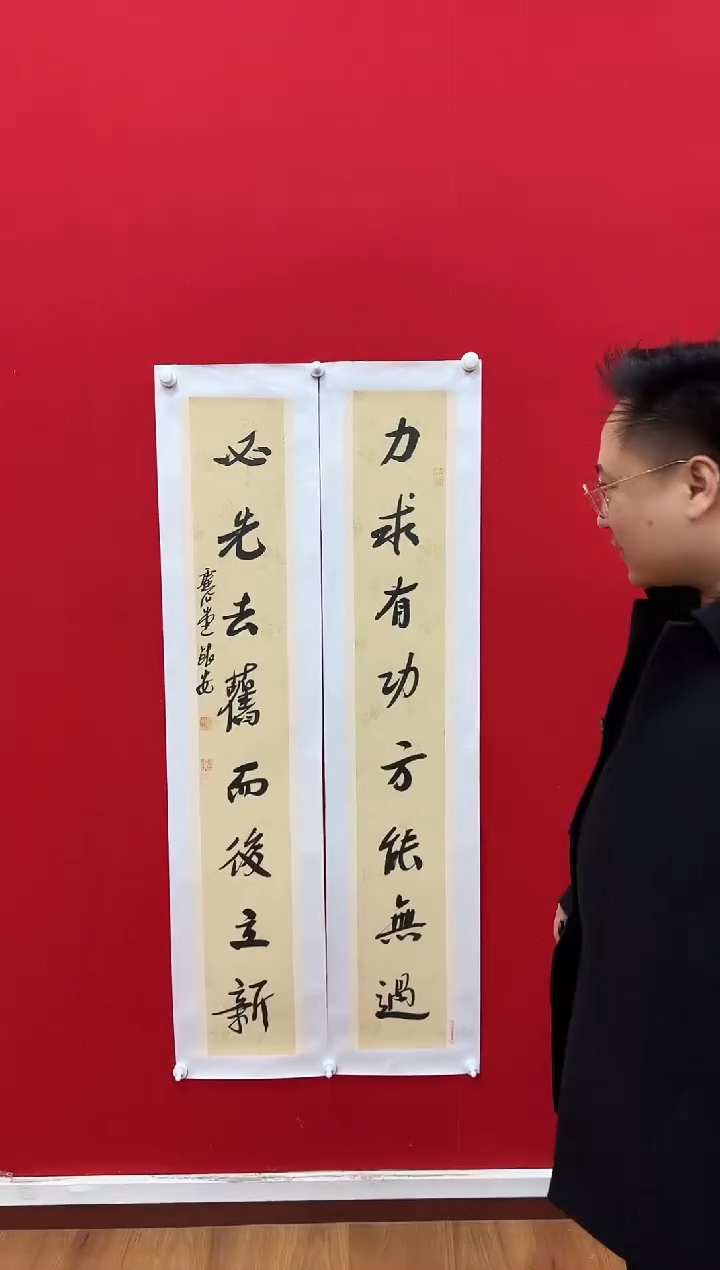 力求有功方能無過
必先去舊而後立新